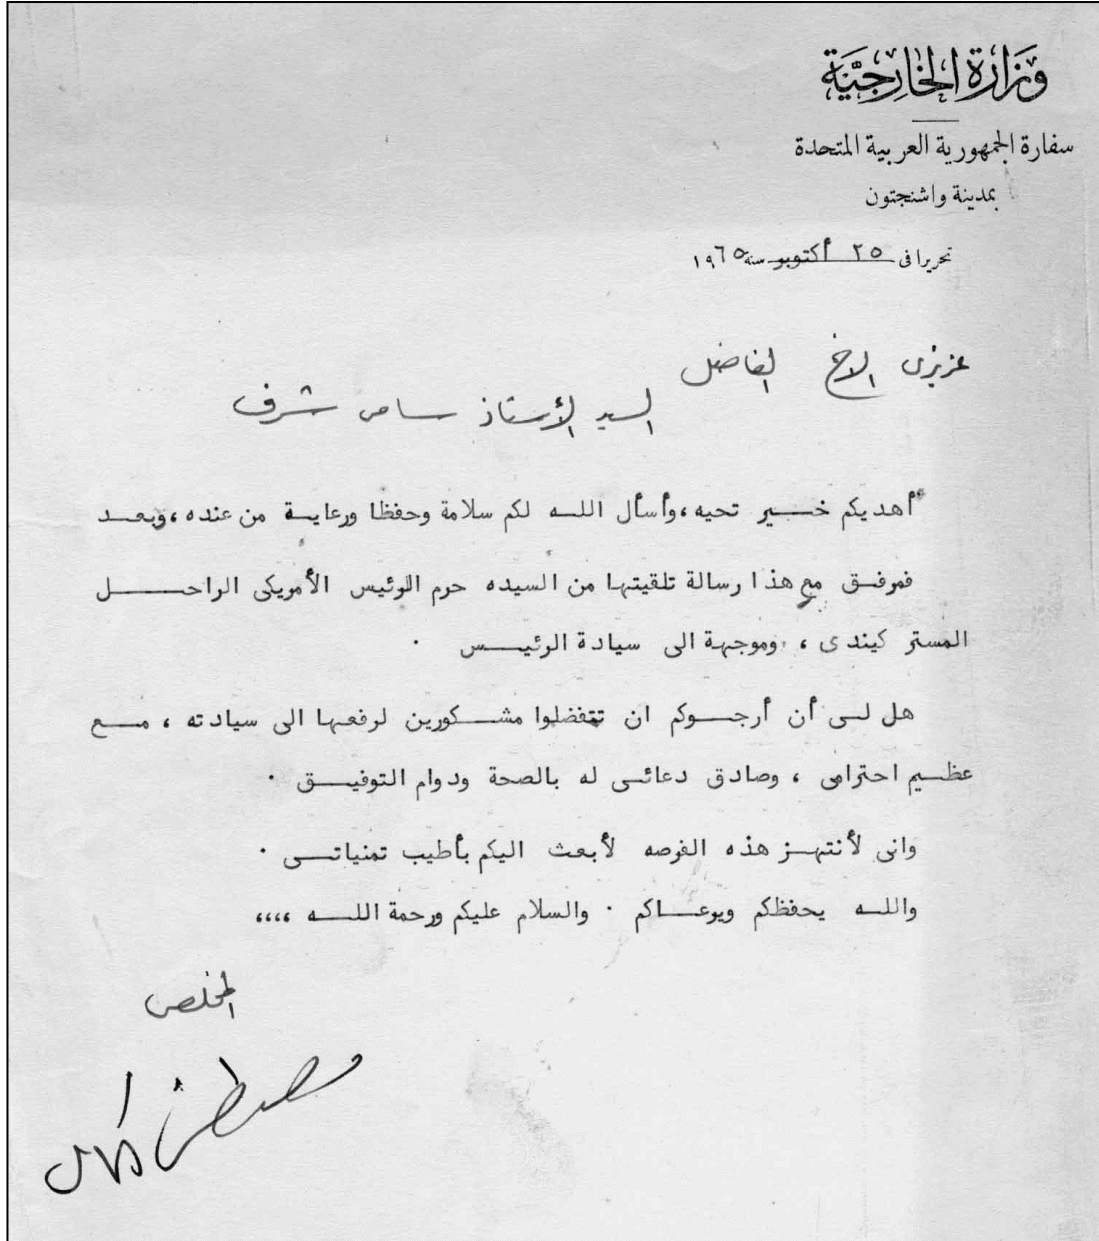 وزارة الخارجية
سفارة الجمهورية العربية المتحدة
بمدينة واشنجتون
تحريرا فى ٢٥ أكتوبر سنة ١٩٦٥
عزيزى الاخ الفاضل
السيد الأستاذ سامى شرف
أهديكم خير تحيه ، وأسأل الله لكم سلامة وحفظا ورعاية من عنده ، وبعد
فمرفق مع هذا رسالة تلقيتها من السيده حرم الرئيس الأمريكى الراحل
المستر كيندى ، وموجهة الى سيادة الرئيس ٠
هل لى أن أرجوكم ان تتفضلوا مشكورين لرفعها الى سيادته ، مع
عظيم احترامى ، وصادق دعائى له بالصحة ودوام التوفيق ٠
وانى لأنتهز هذه الفرصه لأبعث اليكم بأطيب تمنياتى ٠
والله يحفظكم ويرعاكم ٠ والسلام عليكم ورحمة الله ،،،،
المخلص
مصطفى كامل